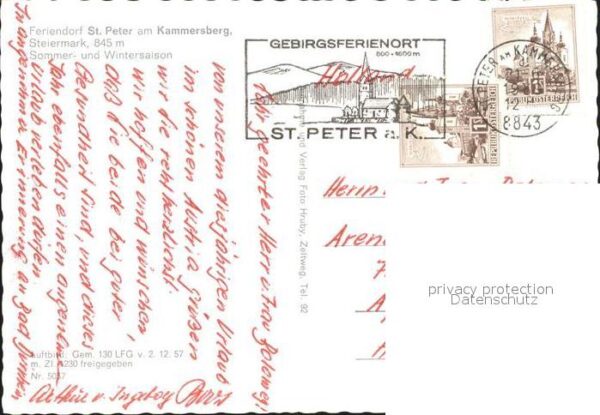 Feriendorf St. Peter am Kammersberg,
Steiermark, 845 m
Sommer- und Wintersaison
GEBIRGSFERIENORT
800 - 1600 m
ST. PETER a. K.
ST. PETER AM KAMMERSBERG
8843
REPUBLIK ÖSTERREICH
REPUBLIK ÖSTERREICH
Holland
Sehr geehrter Herr u. Frau
von unserem diesjährigen Urlaub
im schönen Austria grüßen
wir Sie recht herzlichst.
Wir hoffen und wünschen,
daß Sie beide bei guter
Gesundheit sind, und dieses
Jahr ebenfalls einen angenehmen
Urlaub verleben dürfen.
In angenehmer Erinnerung an Bad
Arthur u. Ingeborg
und Verlag Foto Hruby, Zeltweg, Tel. 92
Herrn
Aren
Luftbild: Gem. 130 LFG v. 2. 12. 57
m. Zl. 4230 freigegeben
Nr. 5037
privacy protection
Datenschutz